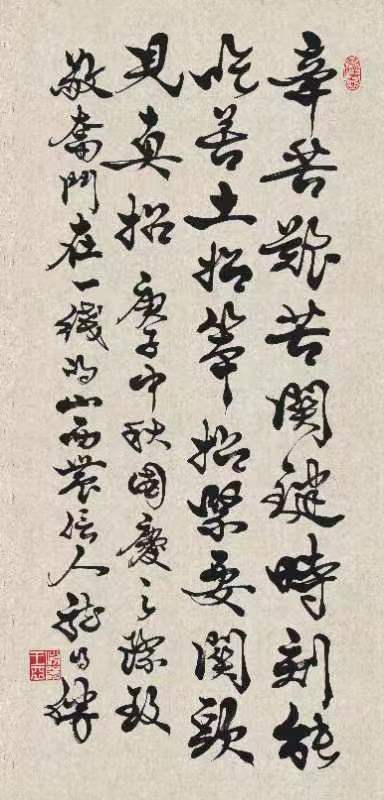 辛苦艱苦関鍵時刻能
吃苦土招笨招緊要関頭
見真招 庚子中秋國慶之際致
敬奮鬥在一綫的山西農信人